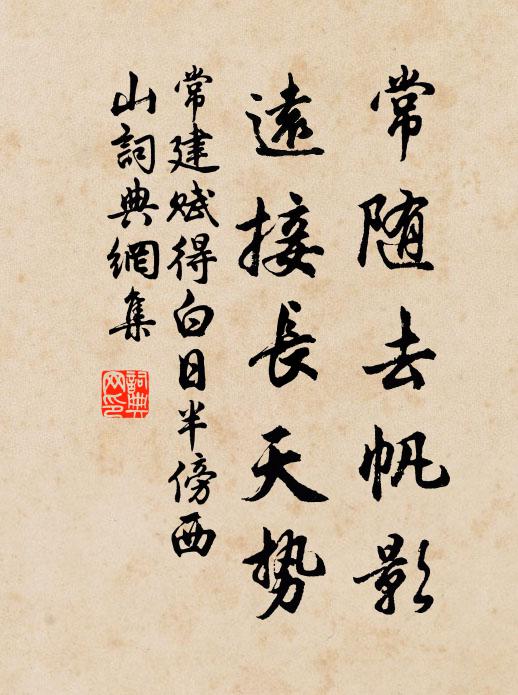 常随去帆影
遠接長天势
常建赋得白日半傍西
山詞典網集
詞典
网印